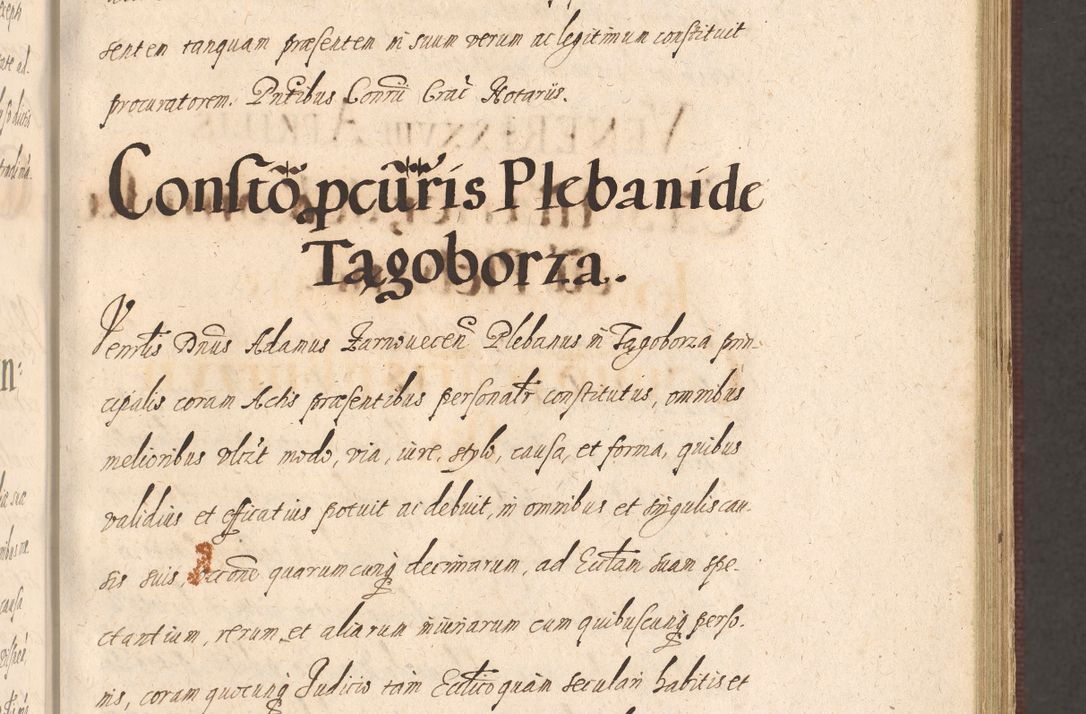 sentem tanquam præsentem in suum verum ac legitimum constituit
procuratorem. Pntibus Conrii Crac Notariis.
Consto pcuris Plebani de
Tagoborza.
Venrlis Dnus Adamus Zarnowecen Plebanus in Tagoborza prin-
cipalis coram Actis præsentibus personalr constitutus, omnibus
melioribus vlizt modo, via, iure, stylo, causa, et forma, quibus
validius et efficatius potuit ac debuit, in omnibus et singulis cau-
sis suis, rcone quarumcunq decimarum, ad Ecclam suam spe-
ctantium, rerum et aliarum iniuriarum cum quibuscunq perso-
nis, coram quocunq Judicio tam Ecclico quam seculari habitis et